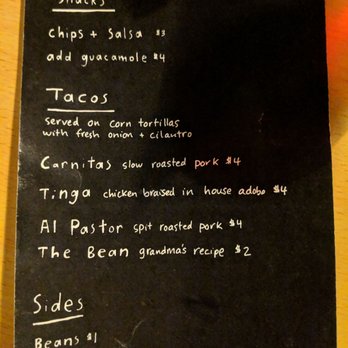 Snacks
chips + salsa $3
add guacamole $4
Tacos
served on corn tortillas
with fresh onion + cilantro
Carnitas slow roasted pork $4
Tinga chicken braised in house adobo $4
Al Pastor spit roasted pork $4
The Bean grandma's recipe $2
Sides
Beans $1